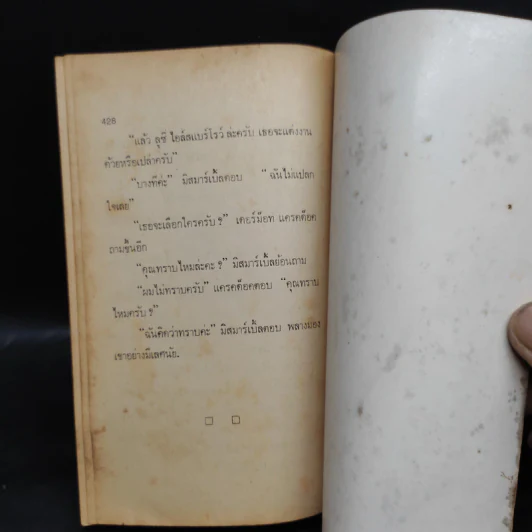 426
"แล้ว ลูซี ไอล์สแบร์โรว์ ล่ะครับ เธอจะแต่งงาน
ด้วยหรือเปล่าครับ"
"บางทีค่ะ" มิสมาร์เบิ้ลตอบ "ฉันไม่แปลก
ใจเลย"
"เธอจะเลือกใครครับ ?" เดอร์ม๊อท แครดด๊อค
ถามขึ้นอีก
"คุณทราบไหมล่ะคะ ?" มิสมาร์เบิ้ลย้อนถาม
"ผมไม่ทราบครับ" แครดด๊อคตอบ "คุณทราบ
ไหมครับ ?"
"ฉันคิดว่าทราบค่ะ" มิสมาร์เบิ้ลตอบ พลางมอง
เขาอย่างมีเลศนัย.